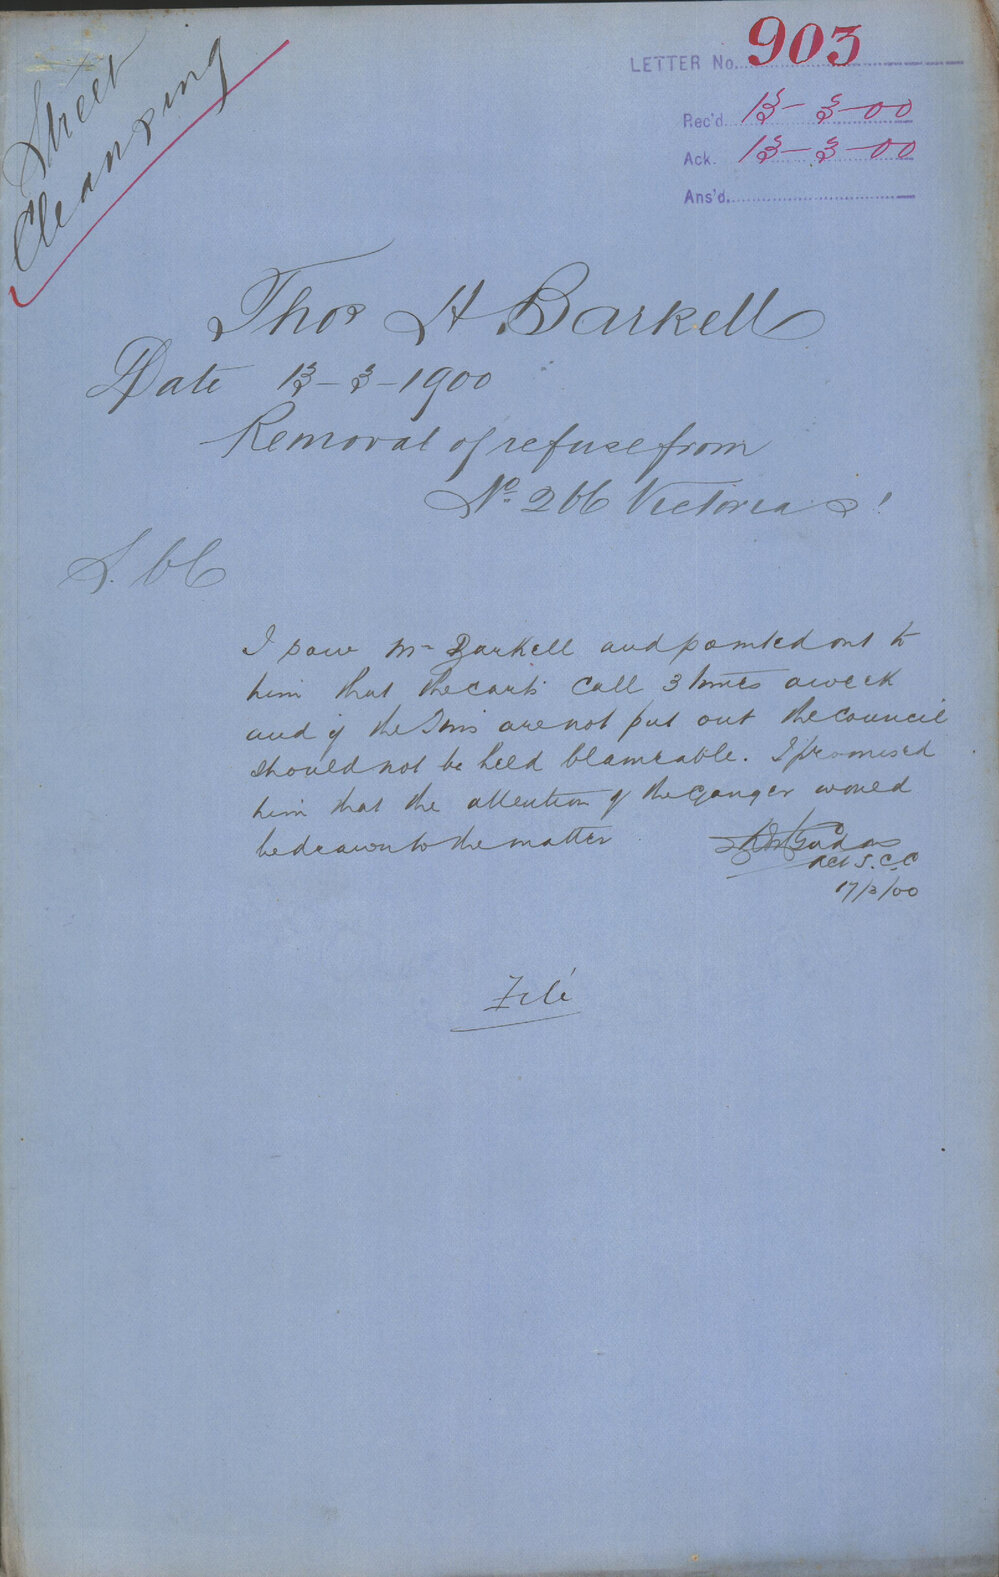 Street
Cleansing
LETTER No. 903
Rec'd. 13-3-00
Ack. 13-3-00
Ans'd.
Thos H Barkell
Date 13-3-1900
Removal of refuse from
No. 266 Victoria S!
I saw Mr Barkell and pointed out to
him that the carts call 3 times a week
and if the Tins are not put out the council
should not be held blameable. I promised
him that the attention of the Ganger would
be drawn to the matter
Act S.C.C
17/3/00
File